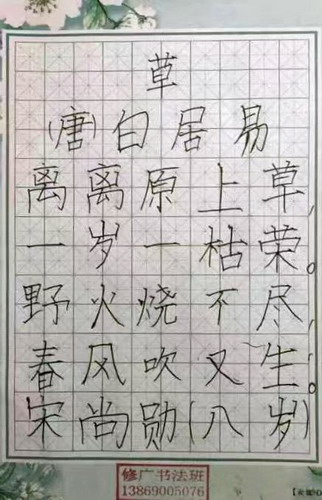 草
(唐)白居易
离离原上草,
一岁一枯荣。
野火烧不尽,
春风吹又生。
宋尚勋(八岁)
修广书法班
13869005076